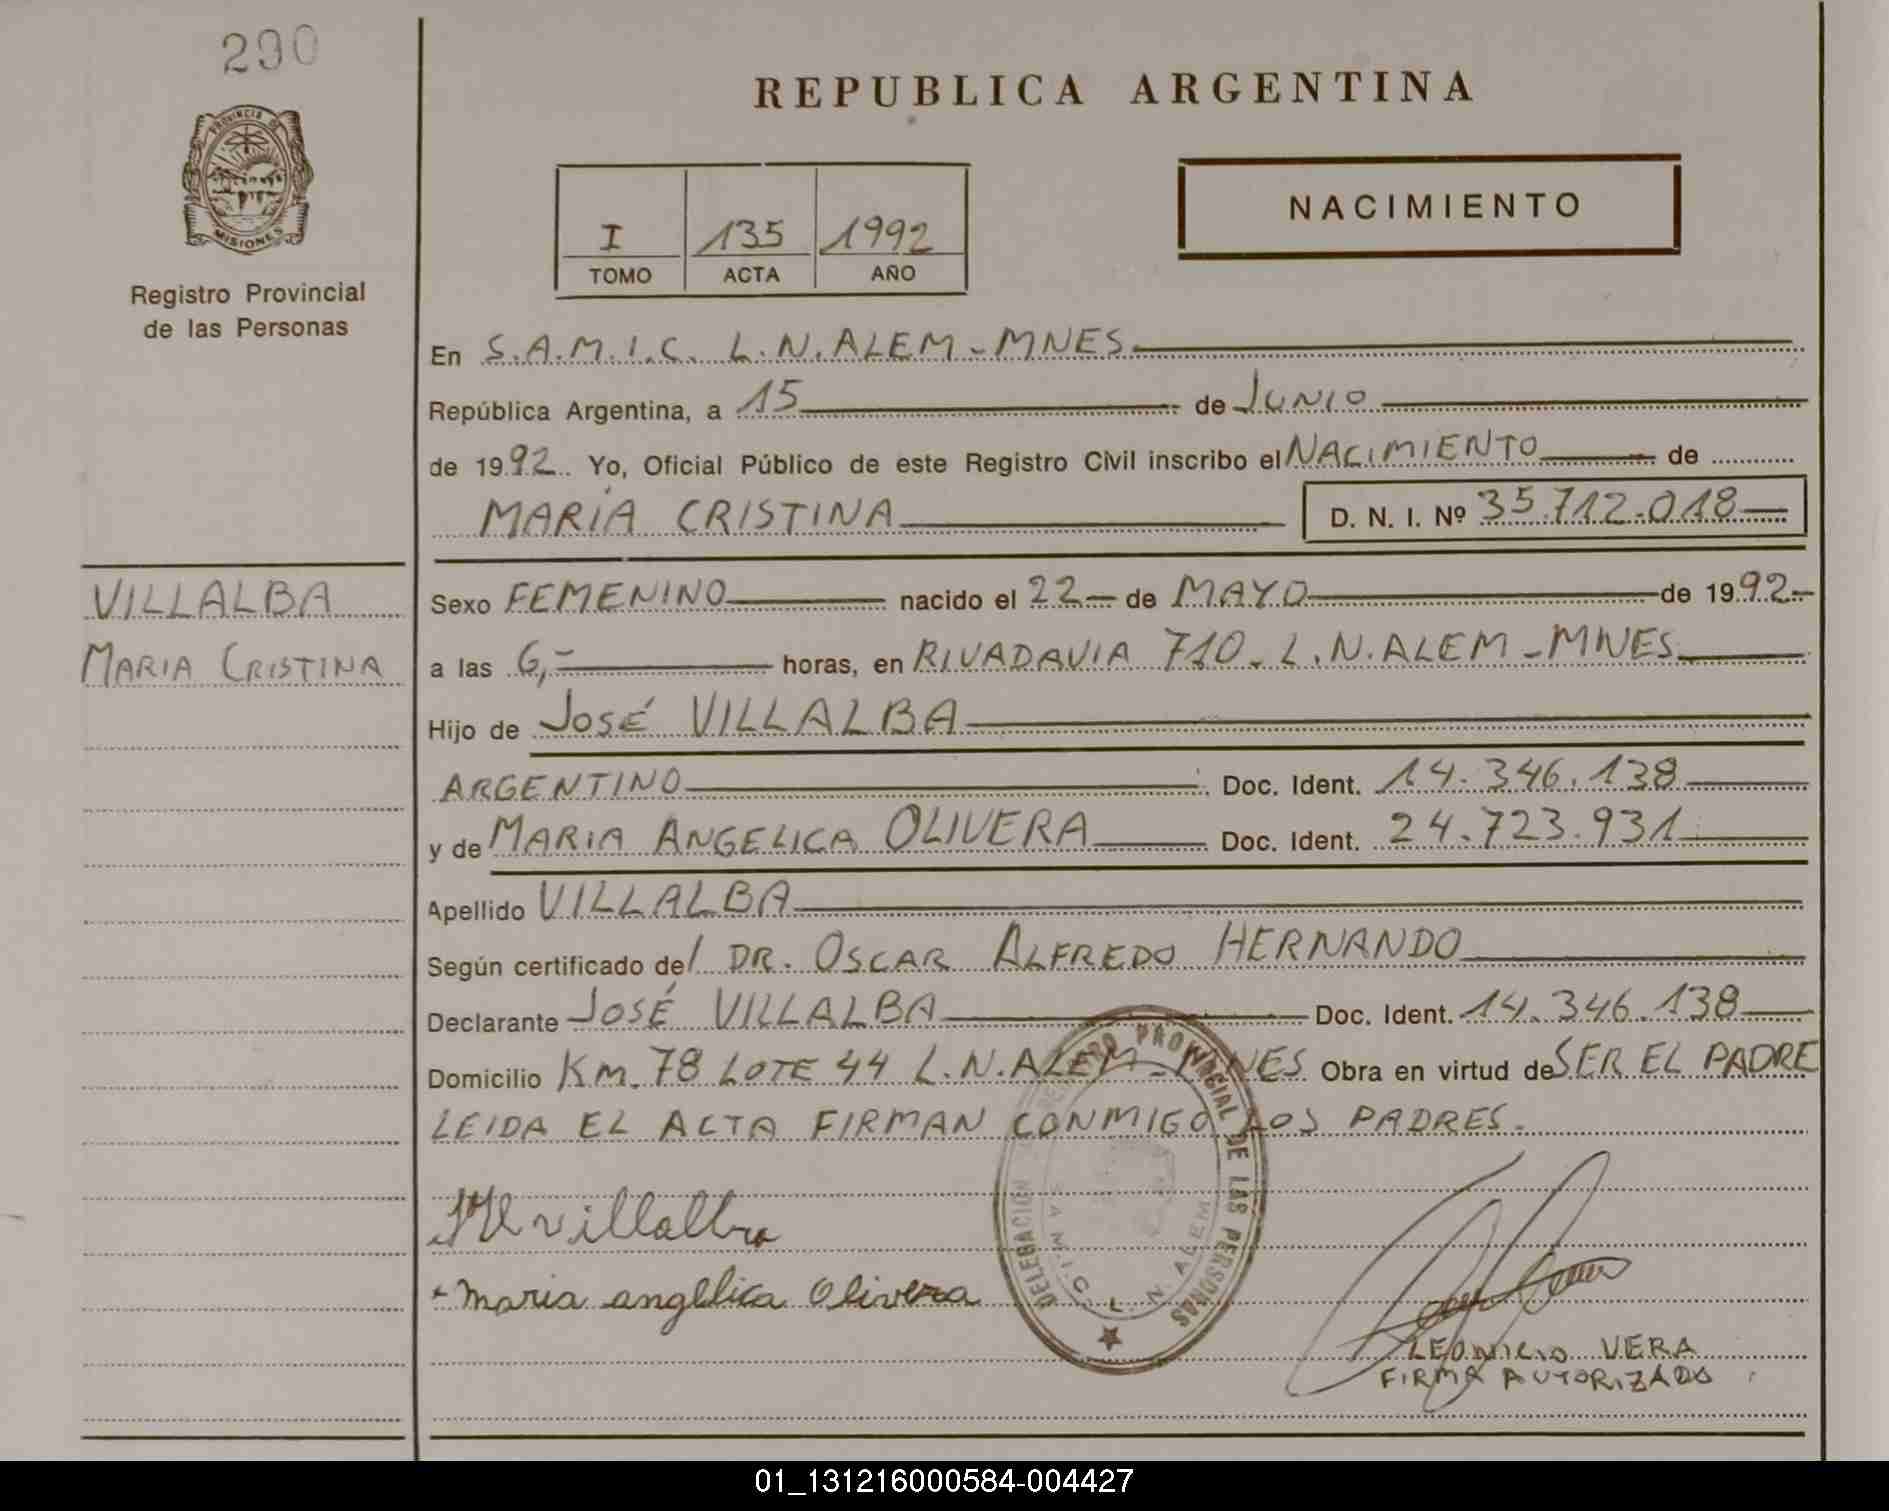 290
REPUBLICA ARGENTINA
PROVINCIA DE
MISIONES
Registro Provincial
de las Personas
I 135 1992
TOMO ACTA AÑO
NACIMIENTO
En S.A.M.I.C. L.N.ALEM-MNES
República Argentina, a 15 de JUNIO
de 1992. Yo, Oficial Público de este Registro Civil inscribo el NACIMIENTO de
MARÍA CRISTINA D. N. I. Nº 35.712.018
VILLALBA
MARIA CRISTINA
Sexo FEMENINO nacido el 22 de MAYO de 1992.-
a las 6,- horas, en RIVADAVIA 710. L.N.ALEM-MNES
Hijo de JOSÉ VILLALBA
ARGENTINO Doc. Ident. 14.346.138
y de MARIA ANGELICA OLIVERA Doc. Ident. 24.723.931
Apellido VILLALBA
Según certificado del DR. OSCAR ALFREDO HERNANDO
Declarante JOSÉ VILLALBA Doc. Ident. 14.346.138
Domicilio KM.78 LOTE 44 L.N.ALEM-MNES Obra en virtud de SER EL PADRE
LEIDA EL ACTA FIRMAN CONMIGO LOS PADRES.
Villalba
maria angelica Olivera
DELEGACIÓN REGISTRO PROVINCIAL DE LAS PERSONAS
S.A.M.I.C. L. N. ALEM
LEONICIO VERA
FIRMA AUTORIZADO
01_131216000584-004427